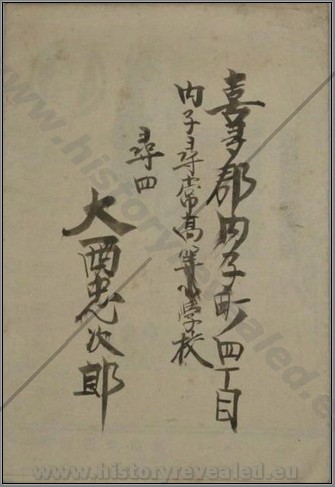 喜多郡内子町四丁目
内子尋常高等小學校
尋四
大西忠次郎
www.historyrevealed.eu
www.historyrevealed.eu